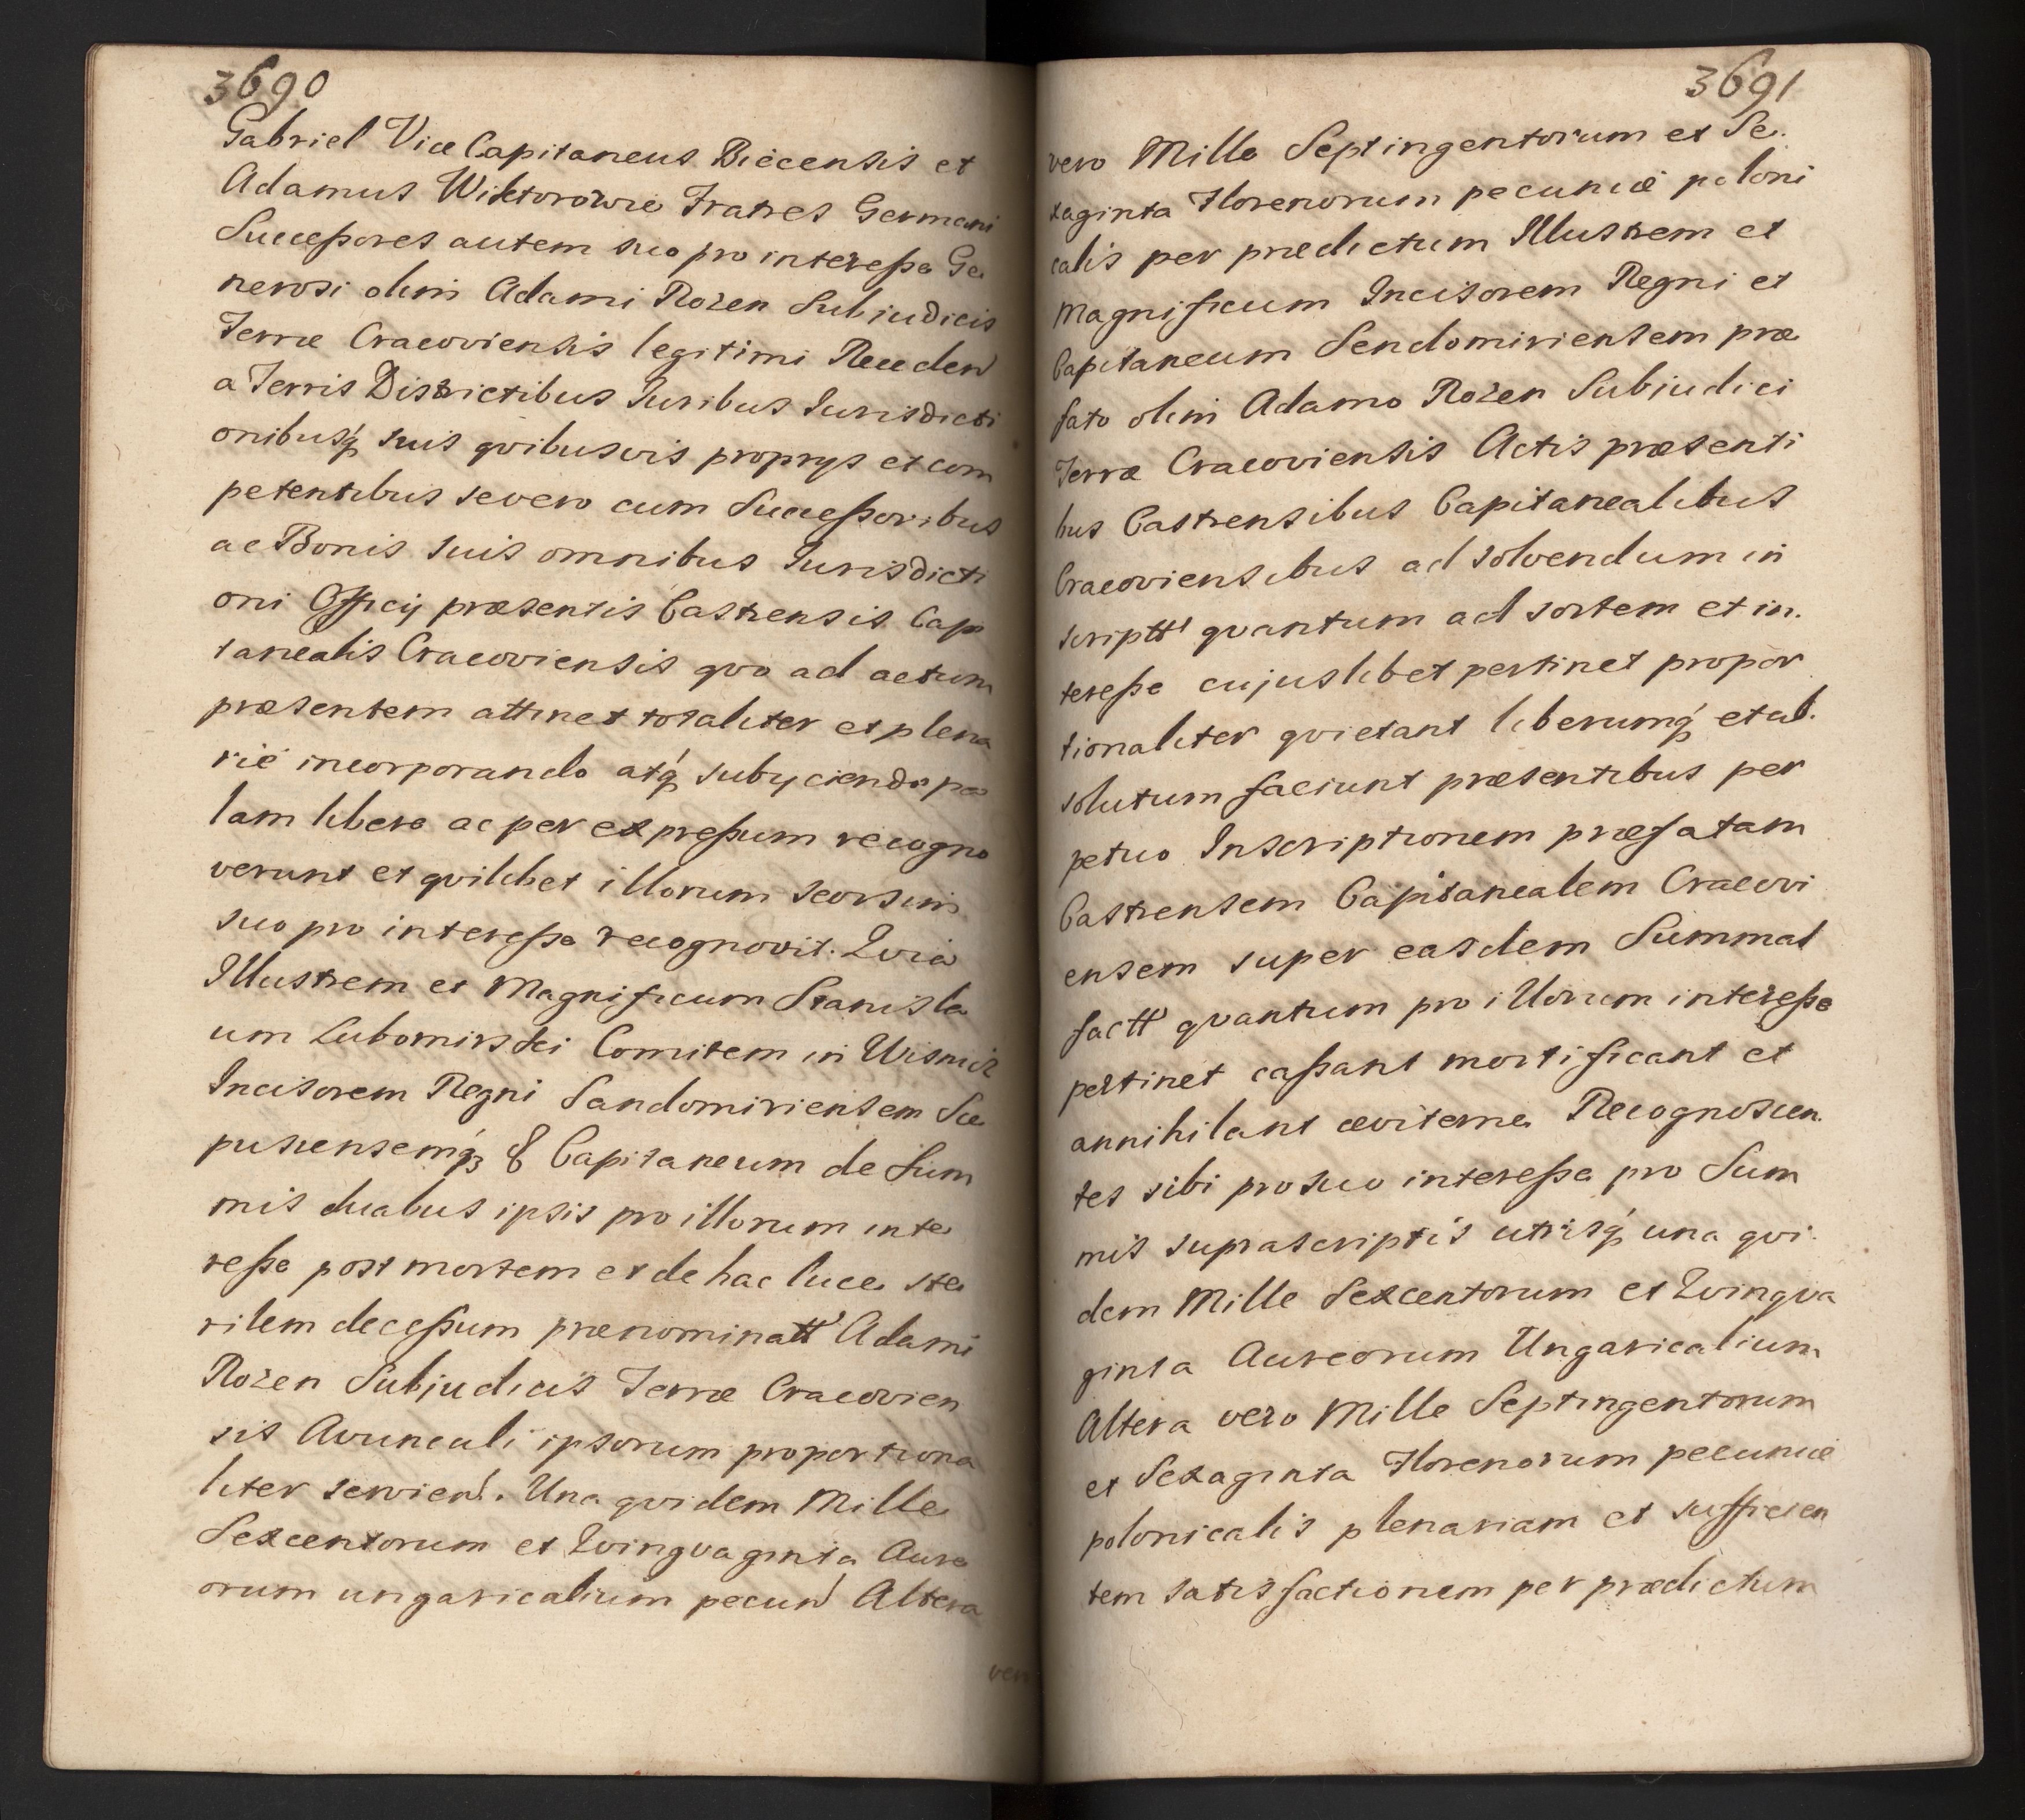 3690
Gabriel Vice Capitaneus Biecensis et
Adamus Wiktorowie Fratres Germani
Successores autem suo pro interesse Ge
nerosi olim Adami Rożen Subjudicis
Terræ Cracoviensis legitimi Receden
a Terris Districtibus Juribus Jurisdicti
onibusq́ suis qvibusvis proprys et com
petentibus se vero cum Successoribus
ac Bonis suis omnibus Jurisdicti
oni Officij præsentis Castrensis Capi
tanealis Cracoviensis qvo ad actum
præsentem attinet totaliter et plena
rie incorporando atq́ subyciendo pa
lam libere ac per expressum recogno
verunt et qvilibet illorum seorsim
suo pro interesse recognovit. Qvia
Illustrem et Magnificum Stanisla
um Lubomirski Comitem in Wisnicz
Incisorem Regni Sandomiriensem Sce
pusiensemq́3 & Capitaneum de Sum
mis duabus ipsis pro illorum inte
resse post mortem et de hac luce ste
rilem decessum prænominatt Adami
Rożen Subjudicis Terræ Cracovien
sis Avunculi ipsorum proportiona
liter servien. Una qvidem Mille
Sexcentorum et Qvinqvaginta Aure
orum ungaricalium pecun Altera
vero
3691
vero Mille Septingentorum et Se.
xaginta Florenorum pecuniæ poloni
calis per prædictum Illustrem et
Magnificum Incisorem Regni et
Capitaneum Sendomiriensem præ
fato olim Adamo Rożen Subjudici
Terræ Cracoviensis Actis præsenti
bus Castrensibus Capitanealibus
Cracoviensibus ad solvendum in
scriptt qvantum ad sortem et in.
teresse cujuslibet pertinet propor
tionaliter qvietant liberumq́ et ab.
solutum faciunt præsentibus per
petuo Inscriptionem præfatam
Castrensem Capitanealem Cracovi
ensem super easdem Summas
factt qvantum pro illorum interesse
pertinet cassant mortificant et
annihilant æviterne Recognoscen.
tes sibi pro suo interesse pro Sum
mis suprascriptis utrisq́ una qvi.
dem Mille Sexcentorum et Qvinqva
ginta Aureorum Ungaricalium
Altera vero Mille Septingentorum
et Sexaginta Florenorum pecuniæ
polonicalis plenariam et sufficien
tem satisfactionem per prædictum